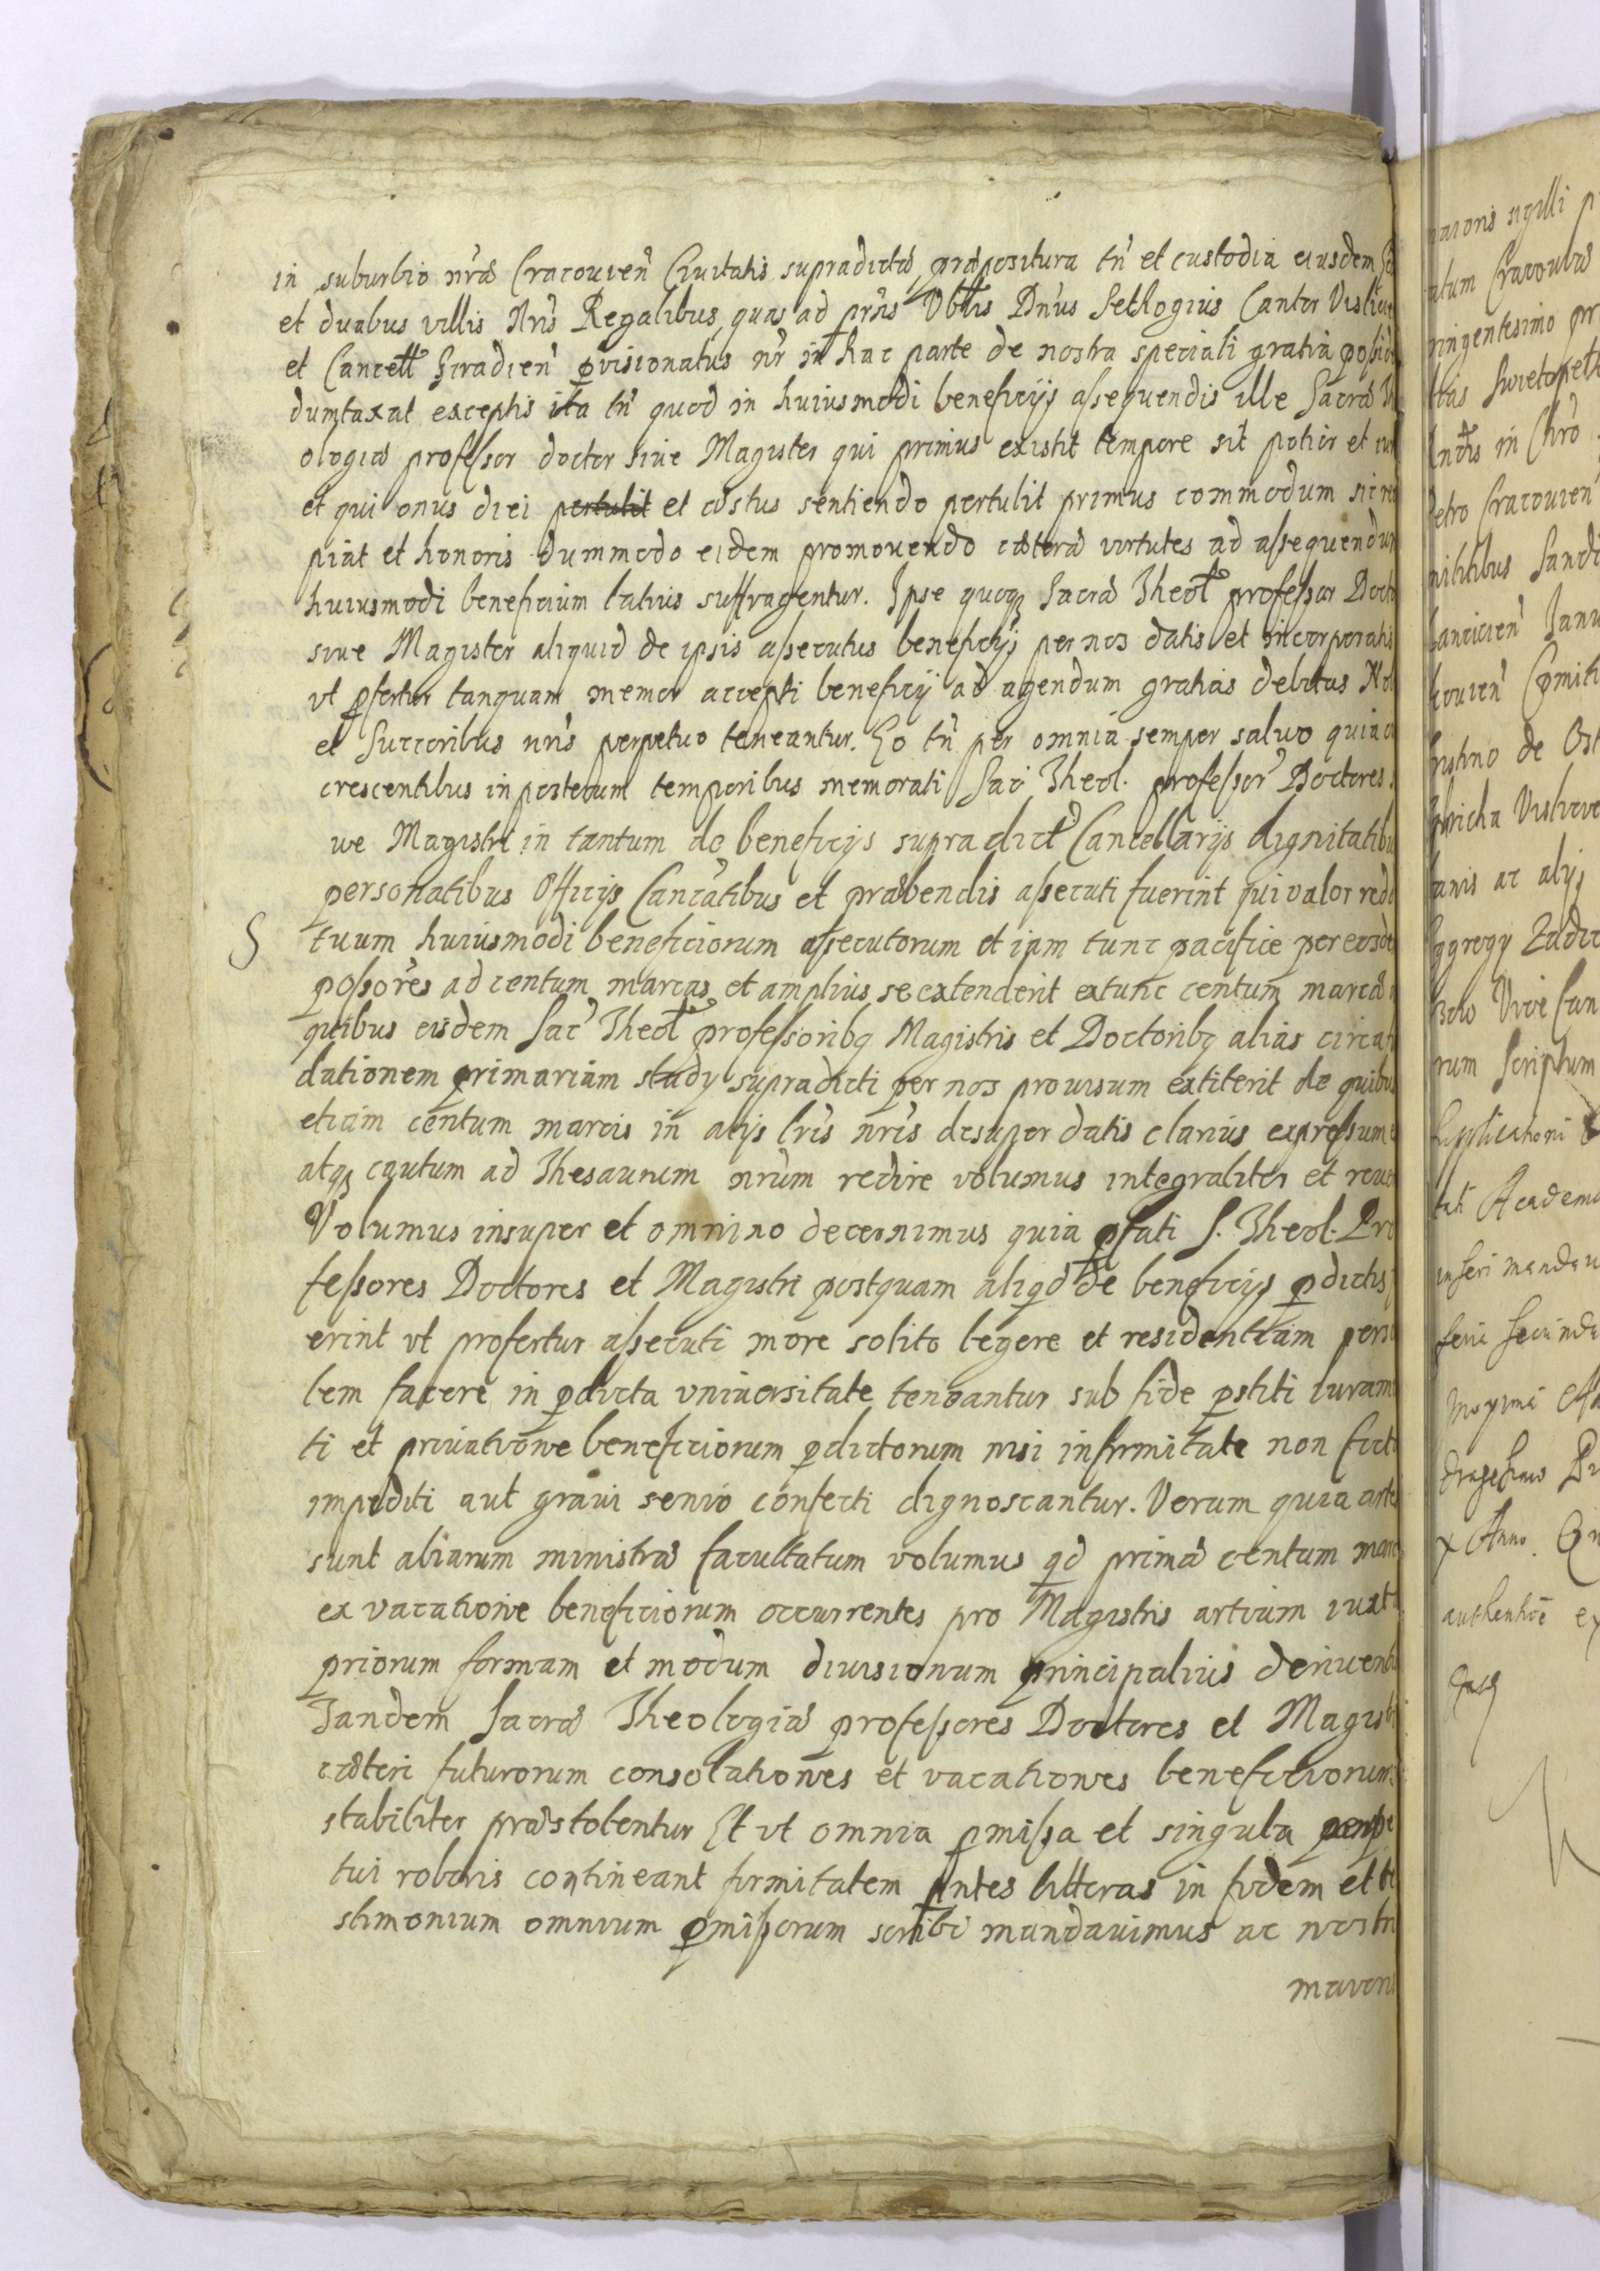 in suburbio nr̃æ Cracouien̄ Ciuitatis supradictæ præpositura tñ et custodia eiusdem
et duabus villis Nris Regalibus quas ad pr̃ns Vblis Dn̄us Sethegius Cantor Vislicie
et Cancell Siradien̄ ꝓuisionatus nr̃ in hac parte de nostra speciali gratia possid
dumtaxat exceptis ita tñ quod in huiusmodi beneficijs assequendis ille Sacræ
ologiæ professor doctor siue Magister qui primus existit tempore sit potior et iur
et qui onus diei pertulit et æstus sentiendo pertulit primus commodum sic re
piat et honoris dummodo eidem promouendo cætera virtutes ad assequendum
huiusmodi beneficium latius suffragentur. Ipse quoq Sacræ Theol professor Docto
siue Magister aliquid de ipsis assecutus beneficijs per nos datis et incorporatis
vt p̱fertur tanquam memor accepti beneficij ad agendum gratias debitas No
et Succoribus nr̃is perpetuo teneantur. Eo tñ per omnia semper saluo quia
crescentibus in posterum temporibus memorati Sac̃ Theol. professor̃ Doctores
ue Magistri in tantum de beneficijs supradict Cancellarijs dignitatibu
personatibus Officijs Canc̃atibus et præbendis assecuti fuerint qui valor redi
S tuum huiusmodi beneficiorum assecutorum et ipm tunc pacifice per eosde
possõres ad centum marcas et amplius se extenderit extunc centum marcæ
quibus eisdem Sac̃ Theol professoribꝗ Magistris et Doctoribꝗ alias circa
dationem primariam studij supradicti per nos prouisum extiterit de quibus
etiam centum marcis in alijs lr̃is nr̃is desuper datis clarius expressum
atqꝫ cautum ad Thesaurum nr̃um redire volumus integraliter et reue
Volumus insuper et omnino decernimus quia p̱fati S. Theol. Pro
fessores Doctores et Magistri postquam aliqd de beneficijs p̱dictis
erint vt profertur assecuti more solito legere et residentiam perso
lem facere in p̱dicta vniuersitate teneantur sub fide p̱stiti iuram
ti et priuatione beneficiorum p̱dictorum nisi infirmitate non ficta
impediti aut graui senio confecti dignoscantur. Verum quia arte
sunt aliarum ministræ facultatum volumus qd primæ centum marc
ex vacatione beneficiorum occurrentes pro Magistris artium iuxt
priorum formam et modum diuisionum principalius deriuent
Tandem Sacræ Theologiæ professores Doctores et Magistri
cæteri futurorum consolationes et vacationes beneficiorum
stabiliter præstolentur Et vt omnia p̱missa et singula perpe
tui roboris contineant firmitatem p̱ntes litteras in fidem et te
stimonium omnium p̱missorum scribi mandauimus ac nostri
maioris sigilli
atum Cracouiæ
ringentesimo
Swietopelk
in Chr̃o
Petro Cracouien̄
militibus Sandi
Lancicien̄ Janu
couien̄
de Ost
Vislicie
ac alijs
rum Scriptum
Supplicationi
Academ
inseri mandau
Anno